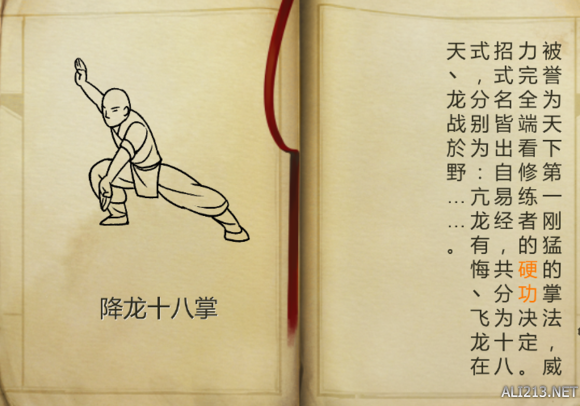 降龙十八掌
被誉为天下第一刚猛的掌法，威
力完全端看修练者的硬功决定。
招式名皆出自易经，共分为十八
式，分别为：亢龙有悔、飞龙在
天、龙战於野……。
ALI213.NET